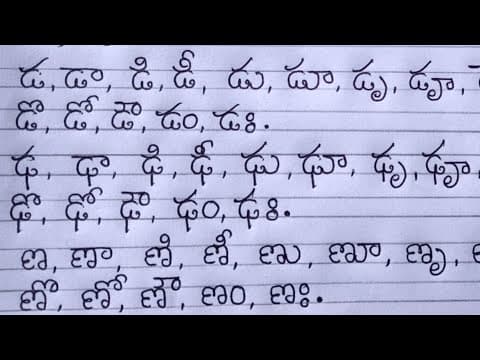 డ, డా, డి, డీ, డు, డూ, డృ, డౄ,
డొ, డో, డౌ, డం, డః.
ఢ, ఢా, ఢి, ఢీ, ఢు, ఢూ, ఢృ, ఢౄ,
ఢొ, ఢో, ఢౌ, ఢం, ఢః.
ణ, ణా, ణి, ణీ, ణు, ణూ, ణృ,
ణొ, ణో, ణౌ, ణం, ణః.